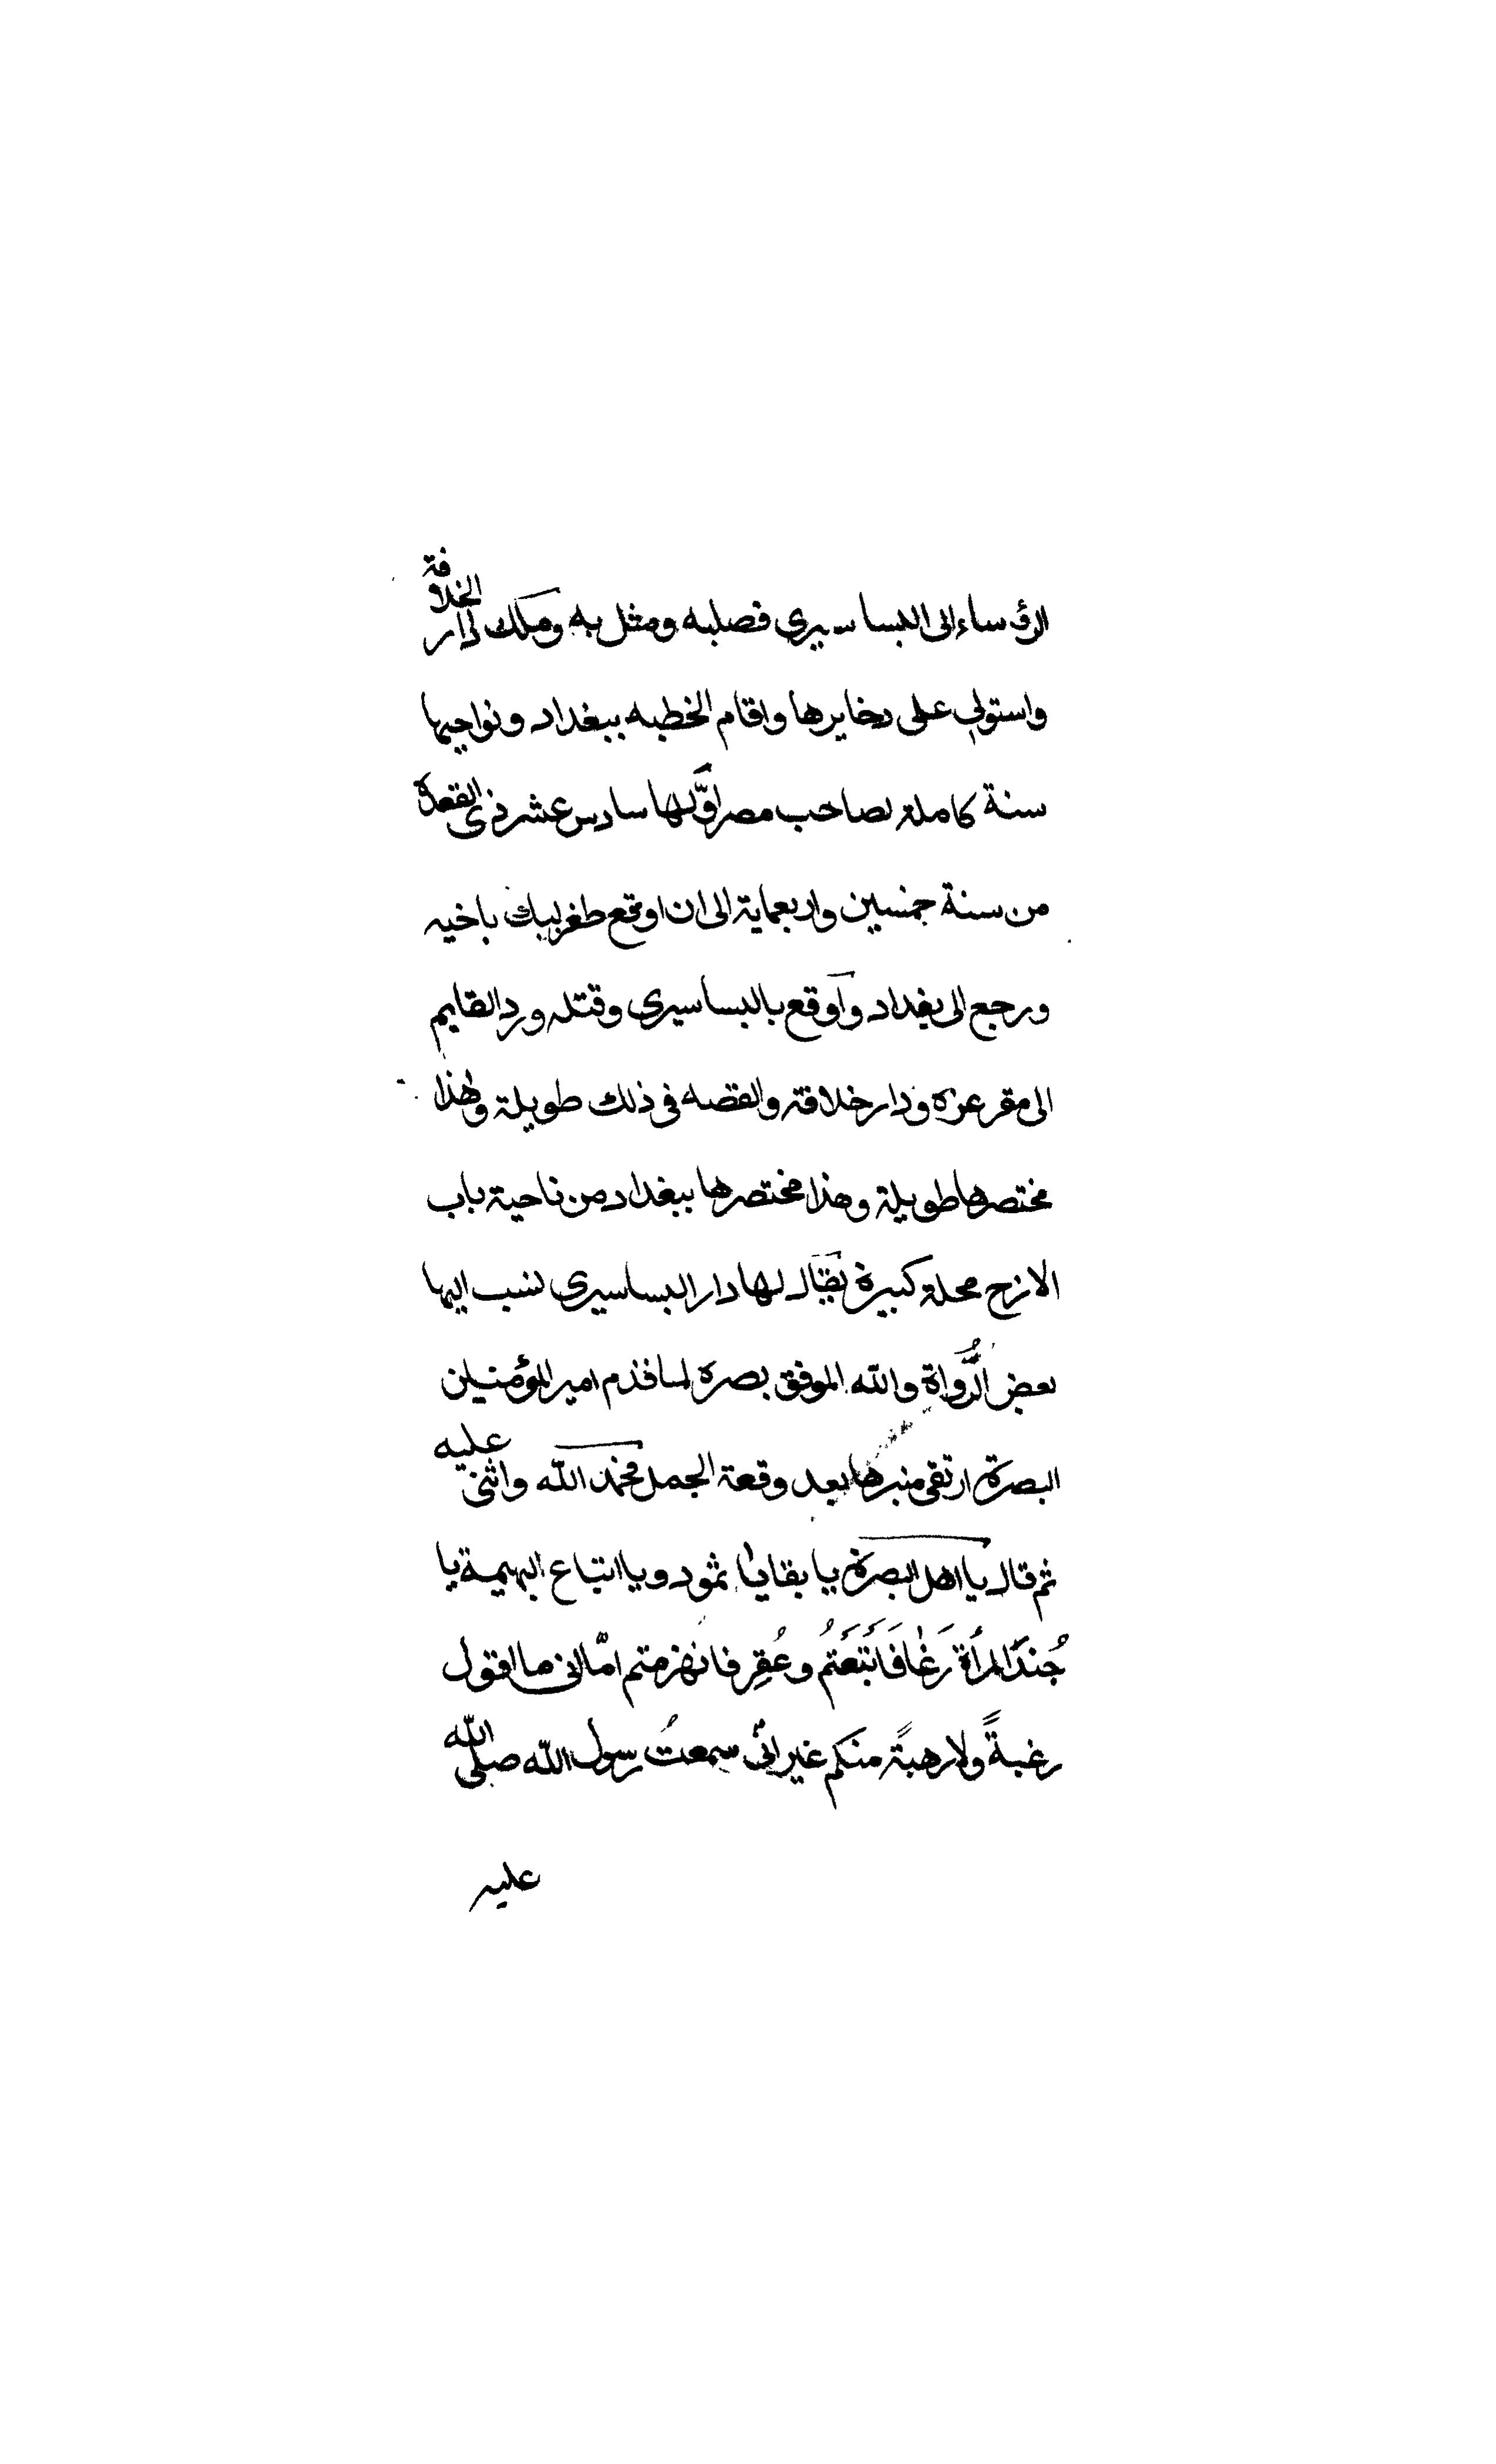 الرؤساء الى البساسيرى فصلبه ومثل به وملك دار الخلافة
واستولى على دخايرها واقام الخطبه ببغداد ونواحيها
سنة كاملة لصاحب مصر اوّلها سادس عشر ذى القعدة
من سنة خمسين واربعماية الى ان اوقع طغرلبك باخيه
ورجع الى بغداد وأوقع بالبساسيرى وقتله ورد القايم
الى مقر عزه ودار خلافة والقصه فى ذلك طويلة وهذا
مختصرها طويلة وهذا مختصرها ببغداد من ناحية باب
الازج محلة كبيرة يقال لها دار البساسيرى نسب اليها
بعض الرُّواة والله الموفق بصرة لما قدم امير المؤمنين
البصرة ارتقى منبرها بعد وقعة الجمل فحمد الله واثنى عليه
ثم قال يا اهل البصرة يا بقايا ثمود ويا اتباع البهيمة يا
جُند المرأة رَغَا فَاتَّبَعتُم وعُقِر فانهزمتم امّا انى ما اقول
رغبةً ولا رهبةً منكم غير انى سمعتُ رسول الله صلى الله
عليه